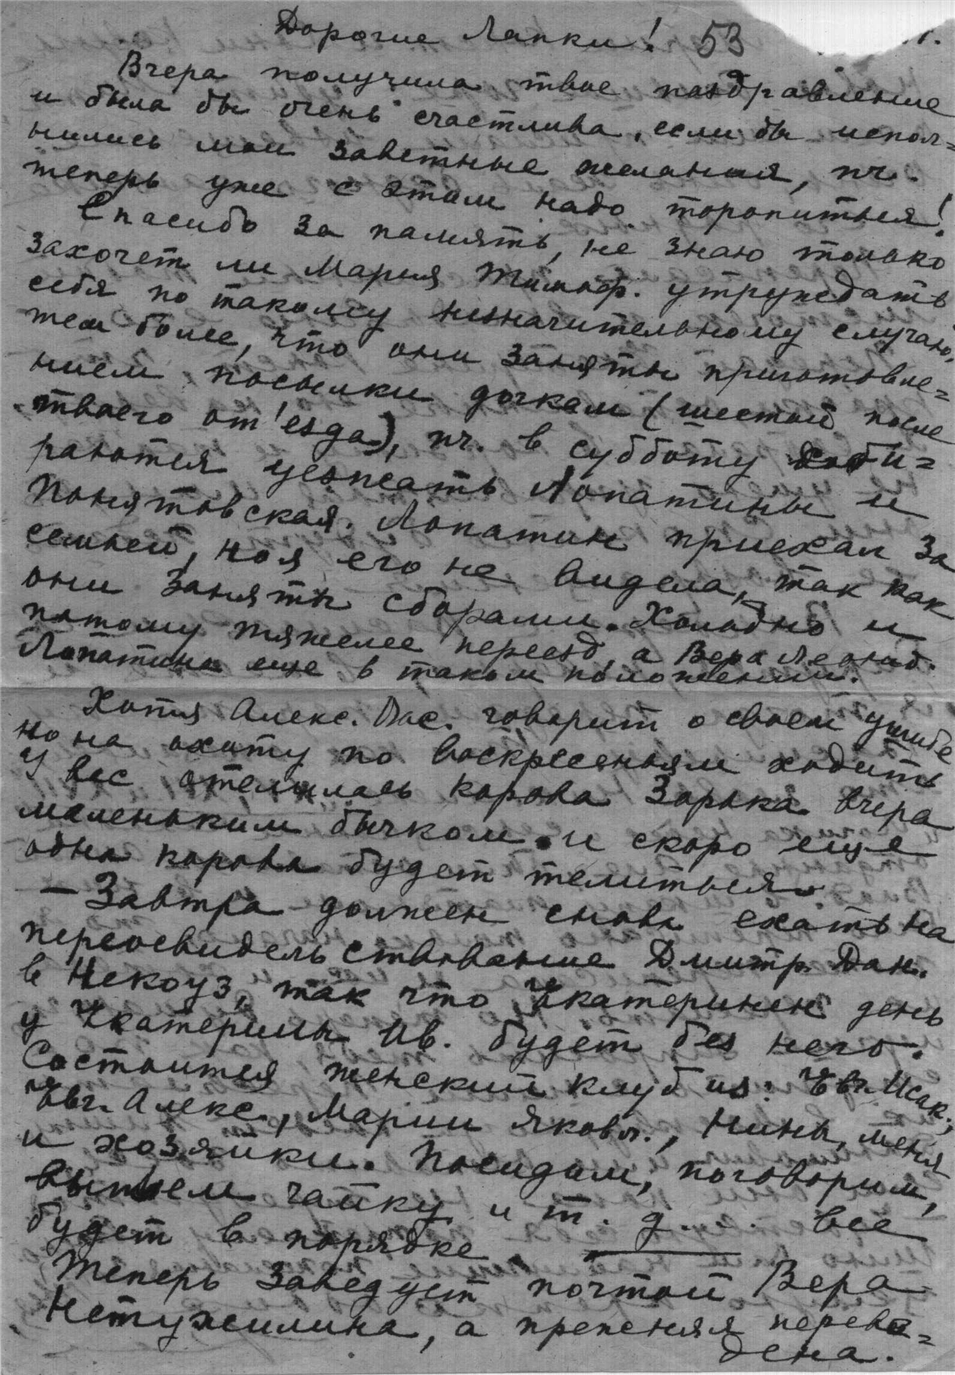 Дорогие Лапки! 53
Вчера получила твое поздравление
и была бы очень счастлива, если бы испол=
нились мои заветные желания, пч.
теперь уже с этим надо торопиться!
Спасибо за память, не знаю только
захочет ли Мария Тимоф. утруждать
себя по такому незначительному случаю,
тем более, что они заняты приготовле=
нием посылки дочкам (шестой после
твоего от'езда), пч. в субботу соби=
раются уезжать Лопатины и
Понятовская. Лопатин приехал за
семьей, но я его не видела, так как
они заняты сборами. Холодно и
потому тяжелее переезд, а Вера Леонид.
Лопатина еще в таком положении.
Хотя Алекс. Вас. говорит о своем ушибе
но на охоту по воскресеньям ходить
У вас отелилась корова Зорька вчера
маленьким бычком и скоро еще
одна корова будет телиться.
— Завтра должен снова ехать на
переосвидельствование Дмитр. Дан.
в Некоуз, так что Екатеринен день
у Екатерины Ив. будет без него.
Состоится женский клуб из: Евг. Исак.,
Евг. Алекс., Марии Яковл., Нины, меня
и хозяйки. Посидим, поговорим,
выпьем чайку и т. д. . все
будет в порядке.
Теперь заведует почтой Вера
Нетужилина, а прежняя переве=
дена.